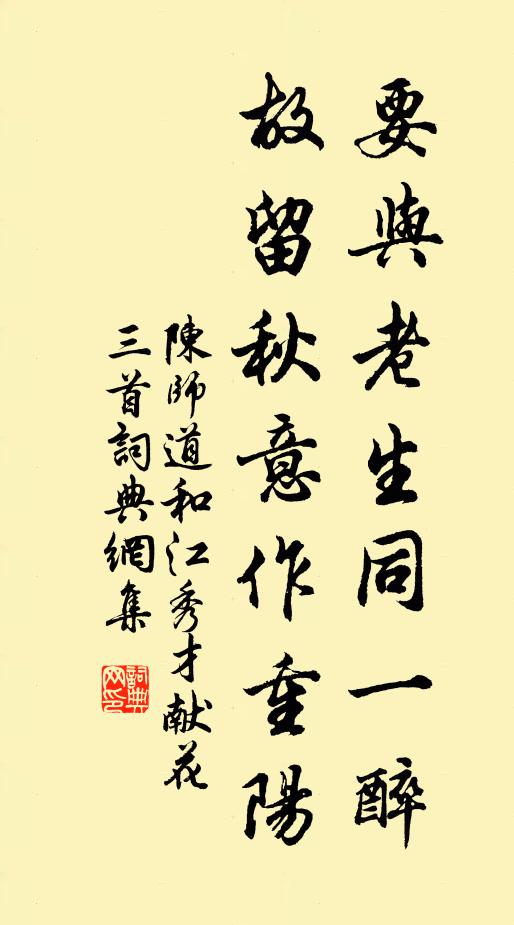 要與老生同一醉
故留秋意作重陽
陳師道和江秀才献花
三首詞典網集
詞典
网印